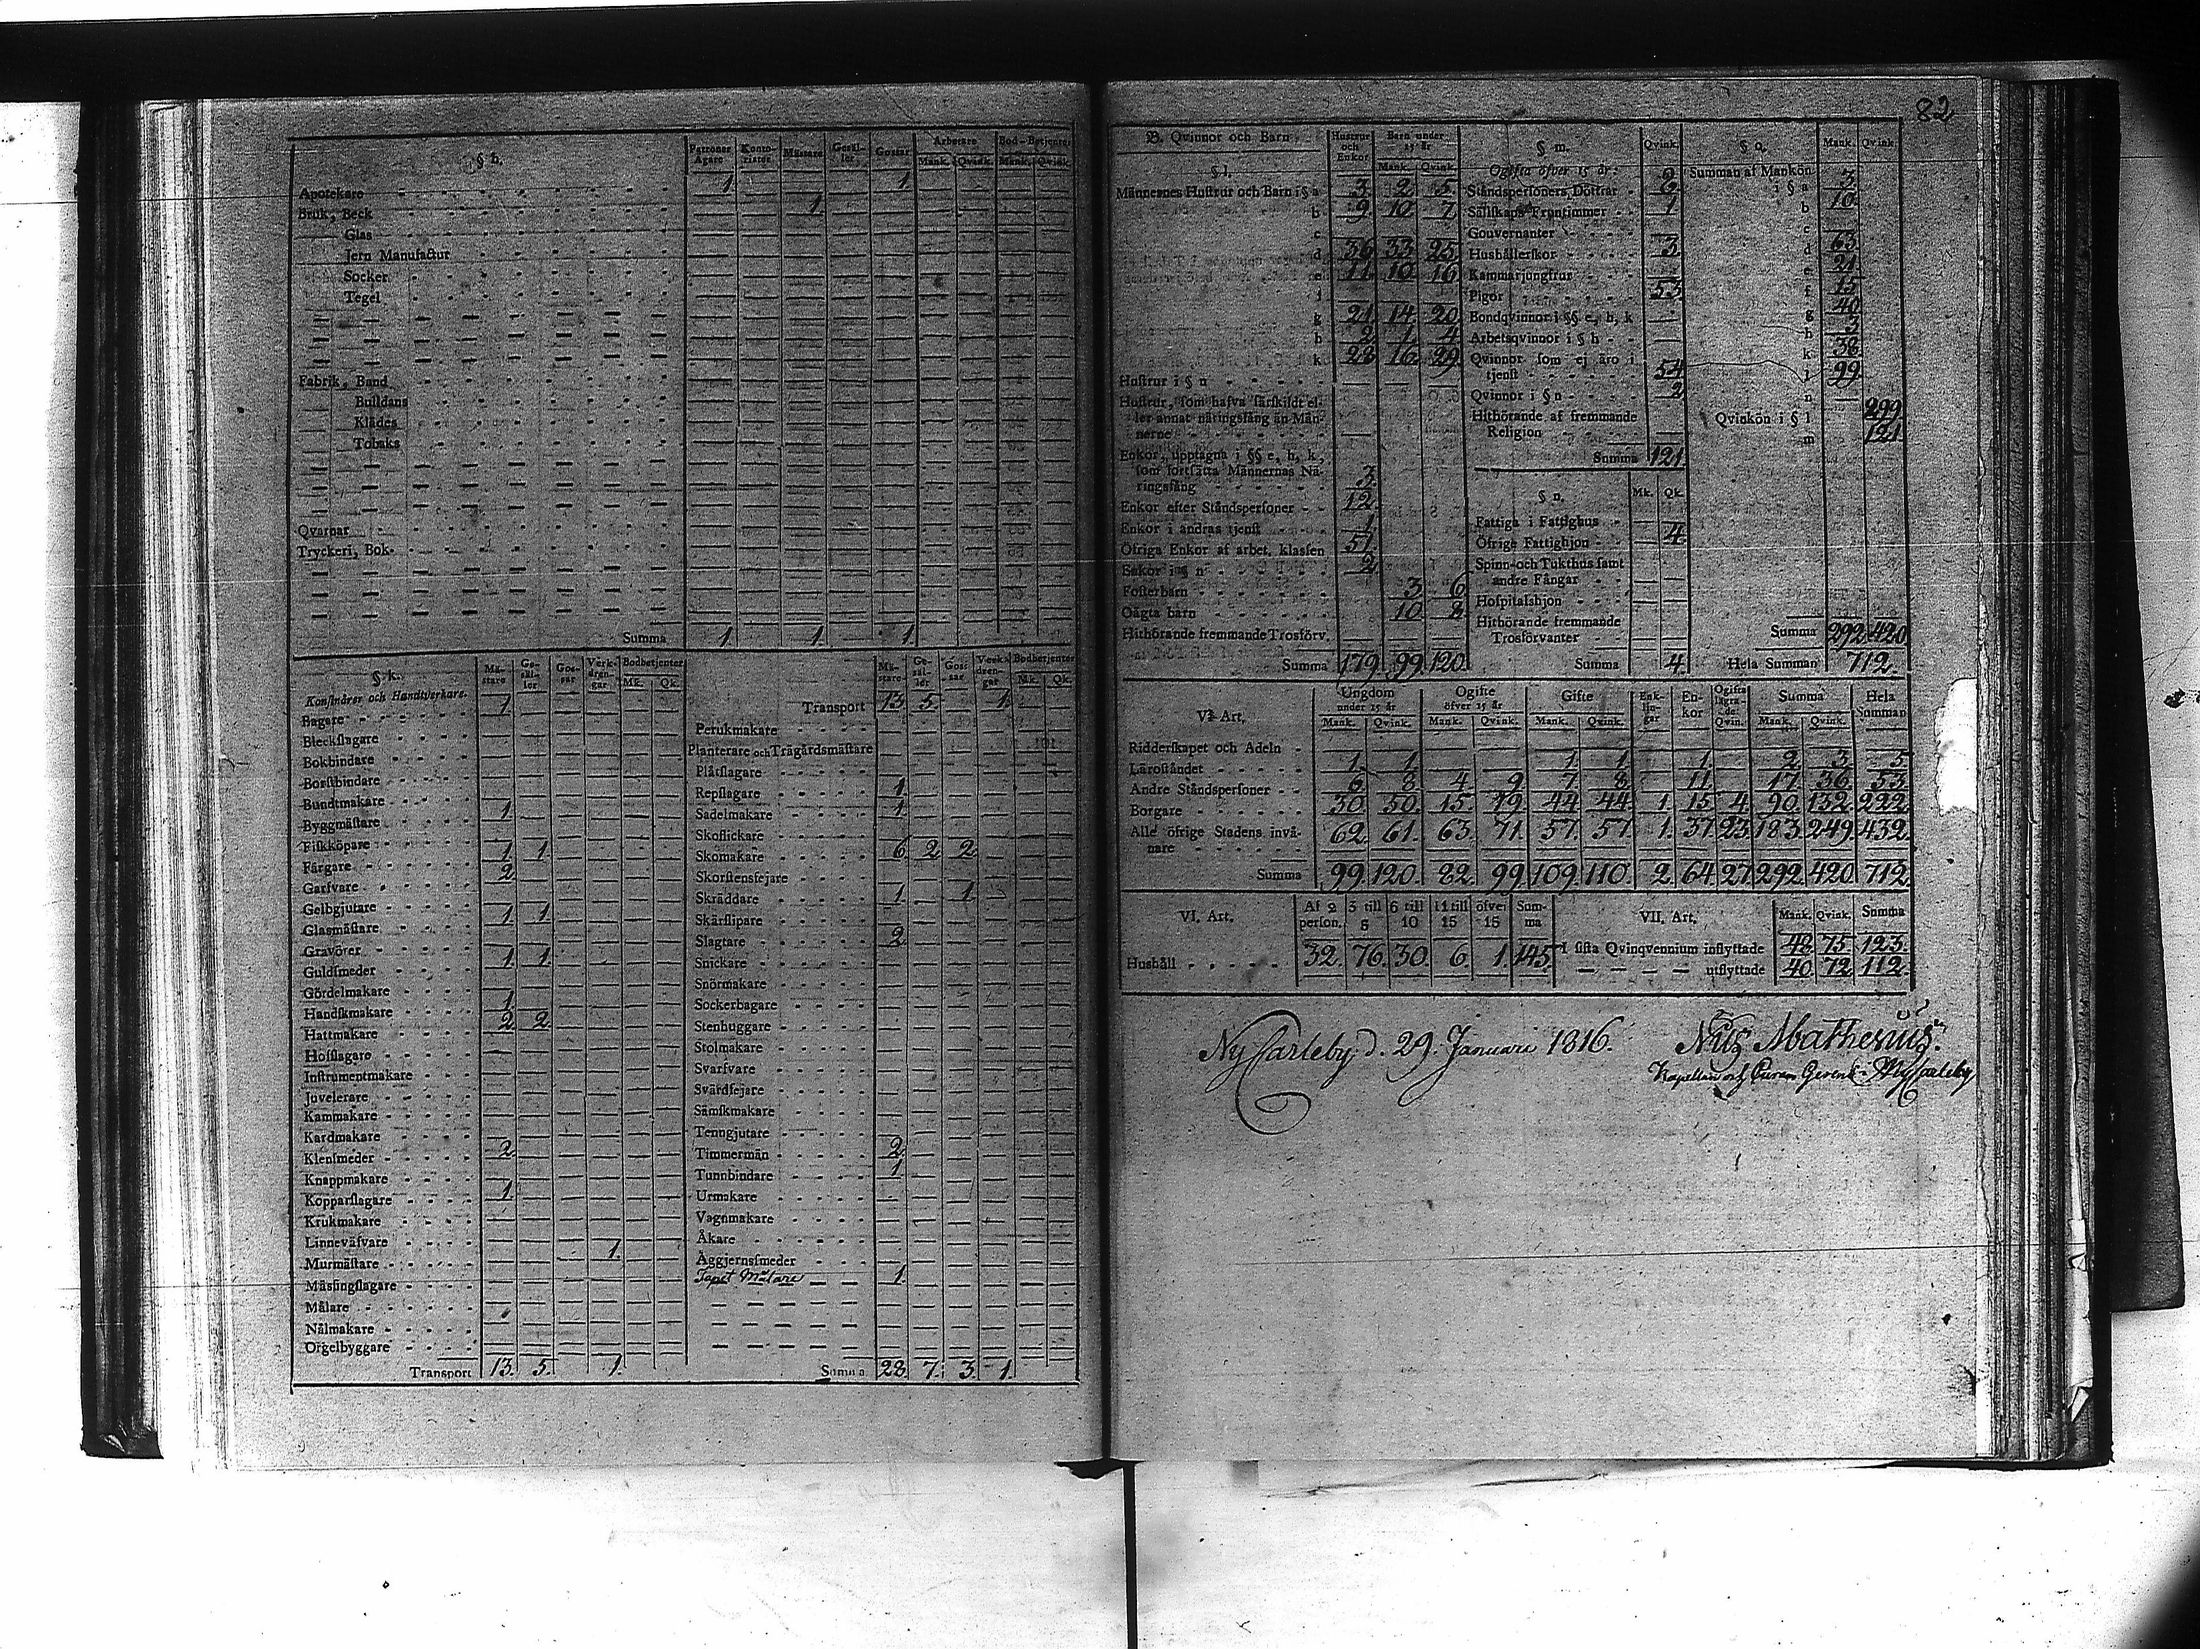 82
§ h.
Patroner Ägare
Konto-rister
Mästare
Gesäl-ler
Gossar
Arbetare
Mank. Qvink.
Bod-Betjenter
Mank. Qvink.
Apotekare 1 1
Bruk, Beck 1
Glas
Jern Manufactur
Socker
Tegel
Fabrik, Band
Bulldans
Klädes
Tobaks
Qvarnar
Tryckeri, Bok-
Summa 1 1 1
§ k.
Konstnärer och Handtverkare.
Mä-stare
Ge-säl-ler
Gos-sar
Verk-dren-gar
Bodbetjenter
Mk. Qk.
Bagare 1
Bleckslagare
Bokbindare
Borstbindare
Bundtmakare
Byggmästare 1
Fiskköpare
Färgare 1. 1.
Garfvare 2
Gelbgjutare
Glasmästare 1 1
Gravörer
Guldsmeder 1. 1.
Gördelmakare
Handskmakare 1
Hattmakare 2 2
Hofslagare
Instrumentmakare
Juvelerare
Kammakare
Kardmakare
Klensmeder 2
Knappmakare
Kopparslagare 1.
Krukmakare
Linneväfvare
Murmästare 1.
Mässingslagare
Målare
Nålmakare
Orgelbyggare
Transport 13. 5. 1.
Mä-stare
Ge-säl-ler
Gos-sar
Verk-dren-gar
Bodbetjenter
Mk. Qk.
Transport 13. 5. 1.
Perukmakare
Planterare och Trägårdsmästare
Plåtslagare
Repslagare 1.
Sadelmakare 1.
Skoflickare
Skomakare 6 2 2
Skorstensfejare
Skräddare 1. 1.
Skärslipare
Slagtare 2
Snickare
Snörmakare
Sockerbagare
Stenhuggare
Stolmakare
Svarfvare
Svärdfejare
Sämskmakare
Tenngjutare
Timmermän 2.
Tunnbindare 1.
Urmakare
Vagnmakare
Åkare
Äggjernssmeder
Tapet Målare 1.
Summa 28 7. 3. 1.
B. Qvinnor och Barn
Hustrur och Enkor
Barn under 15 år
Mank. Qvink.
§ l.
Männernes Hustrur och Barn i § a 3 2 5
b 9 10 7
c
d 36 33 25
e 11 10 16
f
g 21 14 20
h 2 1 4
k 28 16 29
Hustrur i § n
Hustrur, som hafva särskildt el-
ler annat näringsfång än Män-
nerne
Enkor, upptagna i §§ e, h, k,
som fortsätta Männernas Nä-
ringsfång 3.
Enkor efter Ståndspersoner 12
Enkor i andras tjenst 1
Öfriga Enkor af arbet. klassen 51.
Enkor i § n 2
Fosterbarn 3 6
Oägta barn 10 8
Hithörande fremmande Trosförv.
Summa 179. 99. 120.
§ m. Qvink.
Ogifta öfver 15 år:
Ståndspersoners Döttrar 6
Sällskaps Fruntimmer 1
Gouvernanter
Hushållerskor 3
Kammarjungfrur
Pigor 53
Bondqvinnor i §§ e, h, k
Arbetsqvinnor i § h
Qvinnor som ej äro i
tjenst 54
Qvinnor i § n 2
Hithörande af fremmande
Religion
Summa 121.
§ n. Mk. Qk.
Fattiga i Fattighus
Öfrige Fattighjon 4
Spinn- och Tukthus samt
andre Fångar
Hospitalshjon
Hithörande fremmande
Trosförvanter
Summa 4.
§ o. Mank. Qvink.
Summan af Mankön
i § a 3
b 10
c
d 63
e 21
f 15
g 40
h 3
k 38
l 99
n
Qvinkön i § l 299
m 121
Summa 292 420
Hela Summan 712.
V. Art.
Ungdom under 15 år
Mank. Qvink.
Ogifte öfver 15 år
Mank. Qvink.
Gifte
Mank. Qvink.
Enk-lin-gar
En-kor
Ogifta lägra-de Qvin.
Summa
Mank. Qvink.
Hela Summan
Ridderskapet och Adeln
Läroståndet 1 1 1 1 1 2 3 5
Andre Ståndspersoner 6 8 4 9 7 8 11. 17 36 53
Borgare 30 50 15 19 44 44 1 15 4 90 132 222
Alle öfrige Stadens invå-
nare 62 61. 63. 71. 57 57 1. 37 23 183. 249. 432.
Summa 99. 120. 82. 99 109. 110. 2 64 27 292. 420. 712.
VI. Art.
Af 2 person.
3 till 5
6 till 10
11 till 15
öfver 15
Sum-ma
Hushåll 32. 76. 30. 6. 1. 145.
VII. Art. Mank. Qvink. Summa
I sista Qvinqvennium inflyttade 48. 75. 123.
utflyttade 40. 72. 112.
Ny Carleby, d. 29. Januari 1816.
Nils Mathesius.
Kapellan och Curam Gerens i Ny Carleby